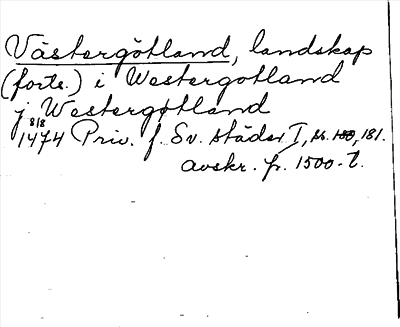 Västergötland, landskap
(forts.) i Westergotland
j Westergøtland
8/8
1474 Priv. f. Sv. städer I, ss. 180, 181.
avskr. fr. 1500-t.